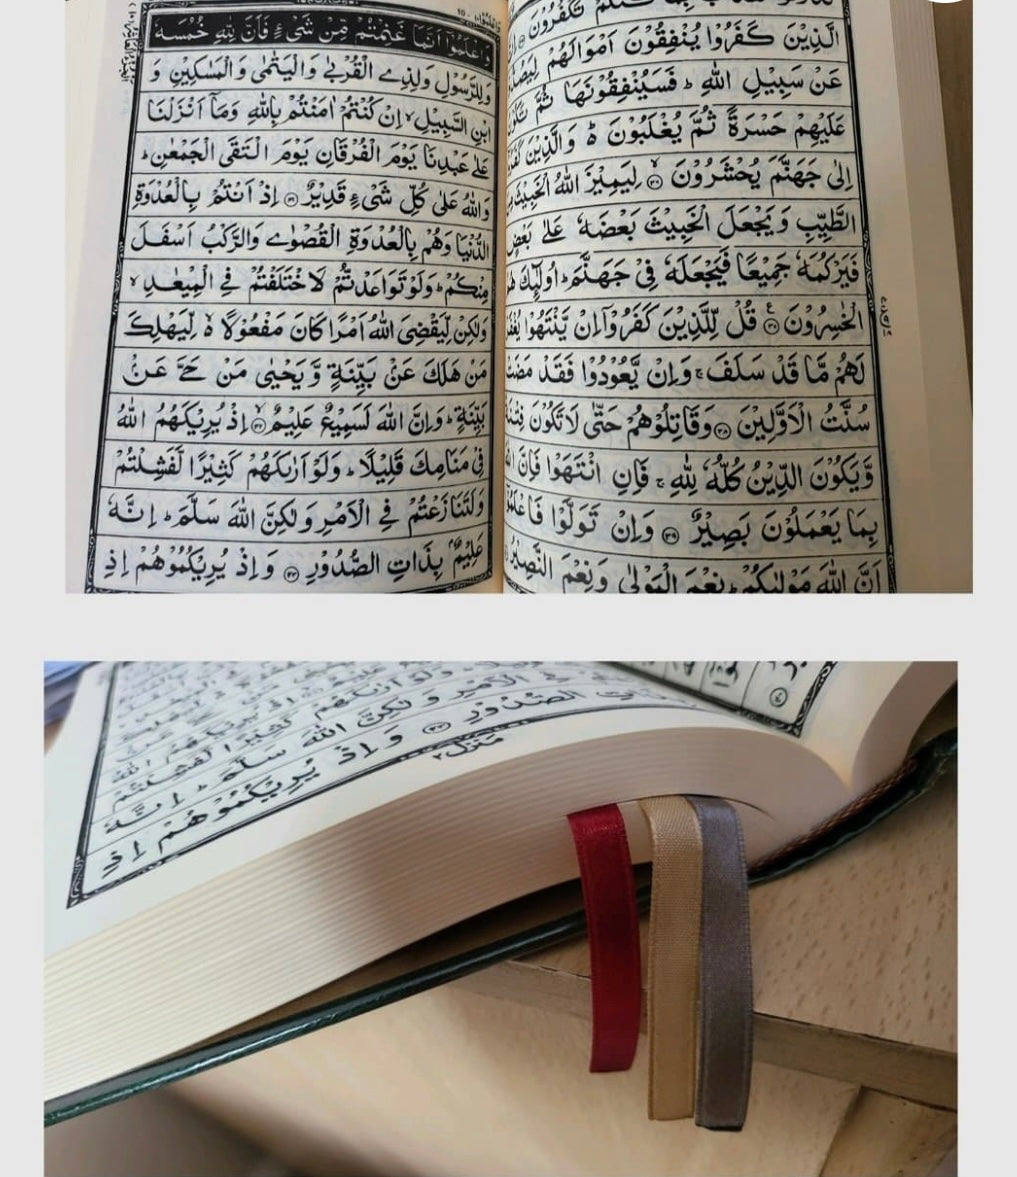 كُنْتُمْ تَكْفُرُوْنَ
الَّذِيْنَ كَفَرُوْا يُنْفِقُوْنَ اَمْوَالَهُمْ
عَنْ سَبِيْلِ اللّٰهِ ؕ فَسَيُنْفِقُوْنَهَا ثُمَّ
عَلَيْهِمْ حَسْرَةً ثُمَّ يُغْلَبُوْنَ ۬ؕ وَالَّذِيْنَ
اِلٰى جَهَنَّمَ يُحْشَرُوْنَ ۙ﴿۳۶﴾ لِيَمِيْزَ اللّٰهُ الْخَبِيْثَ
الطَّيِّبِ وَيَجْعَلَ الْخَبِيْثَ بَعْضَهٗ عَلٰى بَعْضٍ
فَيَرْكُمَهٗ جَمِيْعًا فَيَجْعَلَهٗ فِيْ جَهَنَّمَ ؕ اُولٰٓئِكَ
الْخٰسِرُوْنَ ﴿۳۷﴾ قُلْ لِّلَّذِيْنَ كَفَرُوْۤا اِنْ يَّنْتَهُوْا
لَهُمْ مَّا قَدْ سَلَفَ ۚ وَاِنْ يَّعُوْدُوْا فَقَدْ مَضَتْ
سُنَّتُ الْاَوَّلِيْنَ ﴿۳۸﴾ وَقَاتِلُوْهُمْ حَتّٰى لَا تَكُوْنَ فِتْنَةٌ
وَّيَكُوْنَ الدِّيْنُ كُلُّهٗ لِلّٰهِ ۚ فَاِنِ انْتَهَوْا فَاِنَّ
بِمَا يَعْمَلُوْنَ بَصِيْرٌ ﴿۳۹﴾ وَاِنْ تَوَلَّوْا
اَنَّ اللّٰهَ مَوْلٰىكُمْ ؕ نِعْمَ الْمَوْلٰى وَنِعْمَ النَّصِيْرُ
وَاعْلَمُوْۤا اَنَّمَا غَنِمْتُمْ مِّنْ شَيْءٍ فَاَنَّ لِلّٰهِ خُمُسَهٗ
وَلِلرَّسُوْلِ وَلِذِى الْقُرْبٰى وَالْيَتٰمٰى وَالْمَسٰكِيْنِ وَ
ابْنِ السَّبِيْلِ ۙ اِنْ كُنْتُمْ اٰمَنْتُمْ بِاللّٰهِ وَمَاۤ اَنْزَلْنَا
عَلٰى عَبْدِنَا يَوْمَ الْفُرْقَانِ يَوْمَ الْتَقَى الْجَمْعٰنِ ؕ
وَاللّٰهُ عَلٰى كُلِّ شَيْءٍ قَدِيْرٌ ﴿۴۱﴾ اِذْ اَنْتُمْ بِالْعُدْوَةِ
الدُّنْيَا وَهُمْ بِالْعُدْوَةِ الْقُصْوٰى وَالرَّكْبُ اَسْفَلَ
مِنْكُمْ ؕ وَلَوْ تَوَاعَدْتُّمْ لَاخْتَلَفْتُمْ فِى الْمِيْعٰدِ ۙ
وَلٰكِنْ لِّيَقْضِىَ اللّٰهُ اَمْرًا كَانَ مَفْعُوْلًا ۬ۙ لِّيَهْلِكَ
مَنْ هَلَكَ عَنْۢ بَيِّنَةٍ وَّيَحْيٰى مَنْ حَىَّ عَنْۢ
بَيِّنَةٍ ؕ وَاِنَّ اللّٰهَ لَسَمِيْعٌ عَلِيْمٌ ۙ﴿۴۲﴾ اِذْ يُرِيْكَهُمُ اللّٰهُ
فِيْ مَنَامِكَ قَلِيْلًا ؕ وَلَوْ اَرٰىكَهُمْ كَثِيْرًا لَّفَشِلْتُمْ
وَلَتَنَازَعْتُمْ فِى الْاَمْرِ وَلٰكِنَّ اللّٰهَ سَلَّمَ ؕ اِنَّهٗ
عَلِيْمٌۢ بِذَاتِ الصُّدُوْرِ ﴿۴۳﴾ وَاِذْ يُرِيْكُمُوْهُمْ اِذِ
فِى الْاَمْرِ وَلٰكِنَّ اللّٰهَ سَلَّمَ ؕ اِنَّهٗ
الصُّدُوْرِ ﴿۴۳﴾ وَاِذْ يُرِيْكُمُوْهُمْ اِذِ
منزل ۲